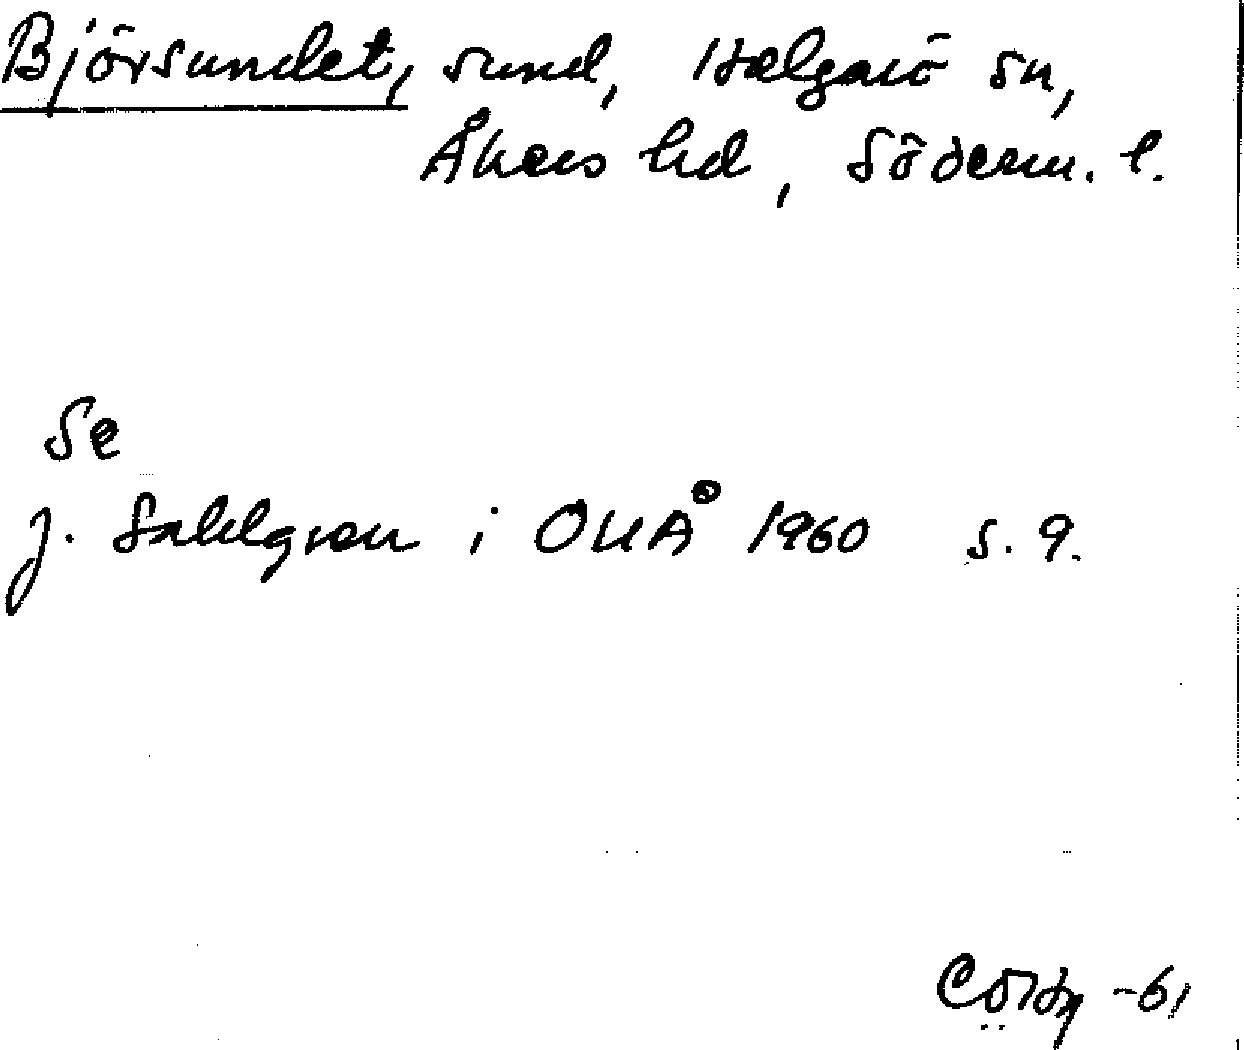 Björsundet, sund, Helgarö sn,
Åkers hd, Söderm. l.
Se
J. Sahlgren i OUÅ 1960 s. 9.
-61